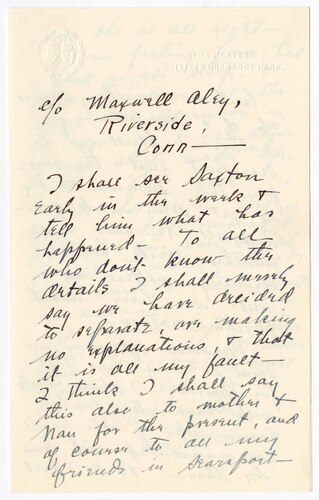 THE PLAYERS
SIXTEEN GRAMERCY PARK
c/o Maxwell Aley,
Riverside,
Conn —
I shall see Saxton
early in the week &
tell him what has
happened — To all
who don't know the
details I shall merely
say we have decided
to separate, are making
no explanations, & that
it is all my fault —
I think I shall say
this also to mother &
Nan for the present, and
of course to all my
friends in Searsport —